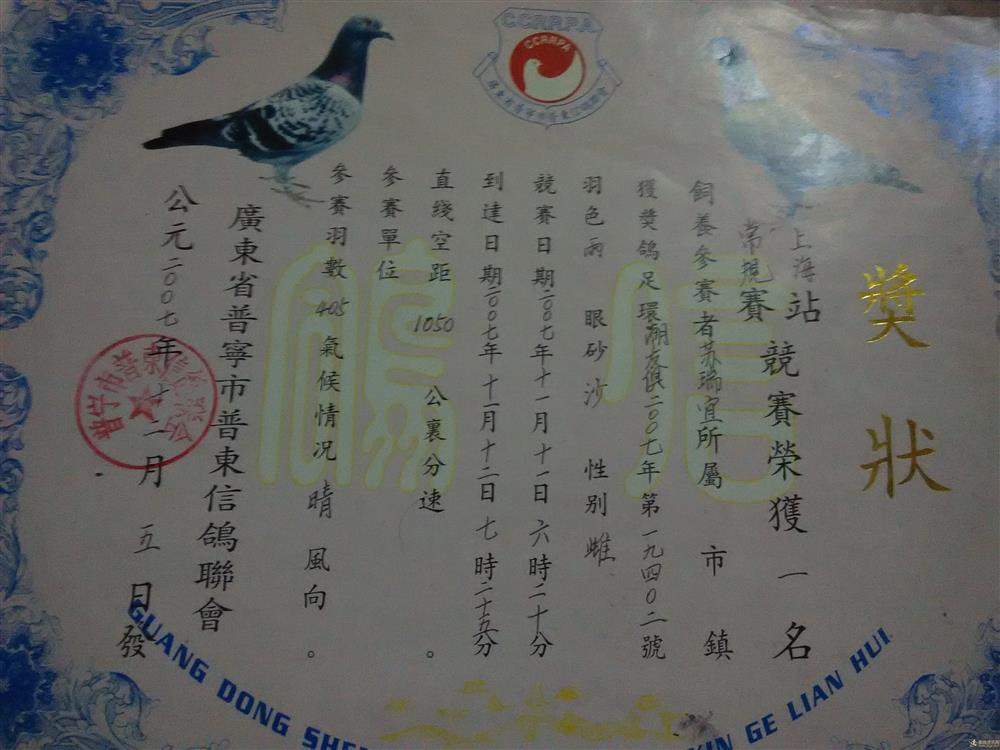 CCRRPA
CCRRPA
獎狀
上海站
常規賽競賽榮獲一名
飼養參賽者苏瑞宜所屬 市 鎮
獲獎鴿足環潮友俱二00七年第一九四0二號
羽色雨 眼砂沙 性別雌
競賽日期二00七年十一月十一日六時二十分
到達日期二00七年十一月十二日七時二十五分
直綫空距 1050 公裏分速 。
參賽單位
參賽羽數 405 氣候情况 晴 風向 。
廣東省普寧市普東信鴿聯會
公元二00七年十二月五日發
鴿信
GUANG DONG SHE
XIN GE LIAN HUI